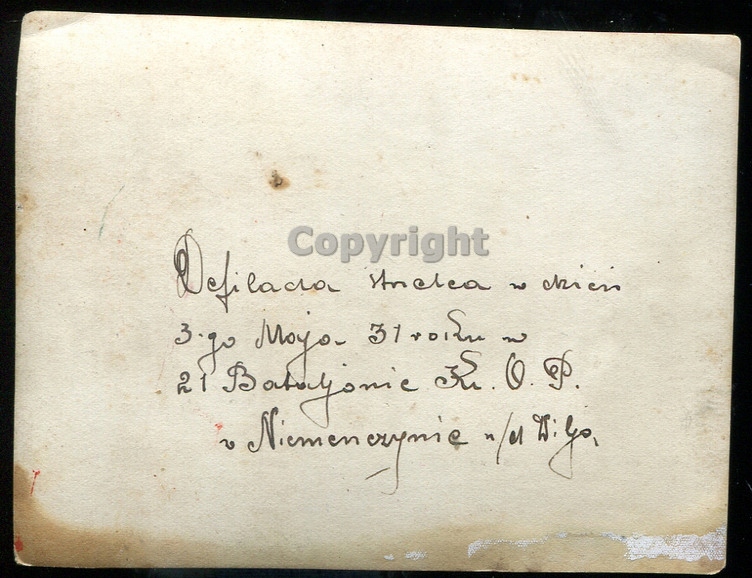 Copyright
Defilada strzelca w dzień
3-go Maja 31 roku w
21 Bataljonie K. O. P.
w Niemenczynie n/d Wilją